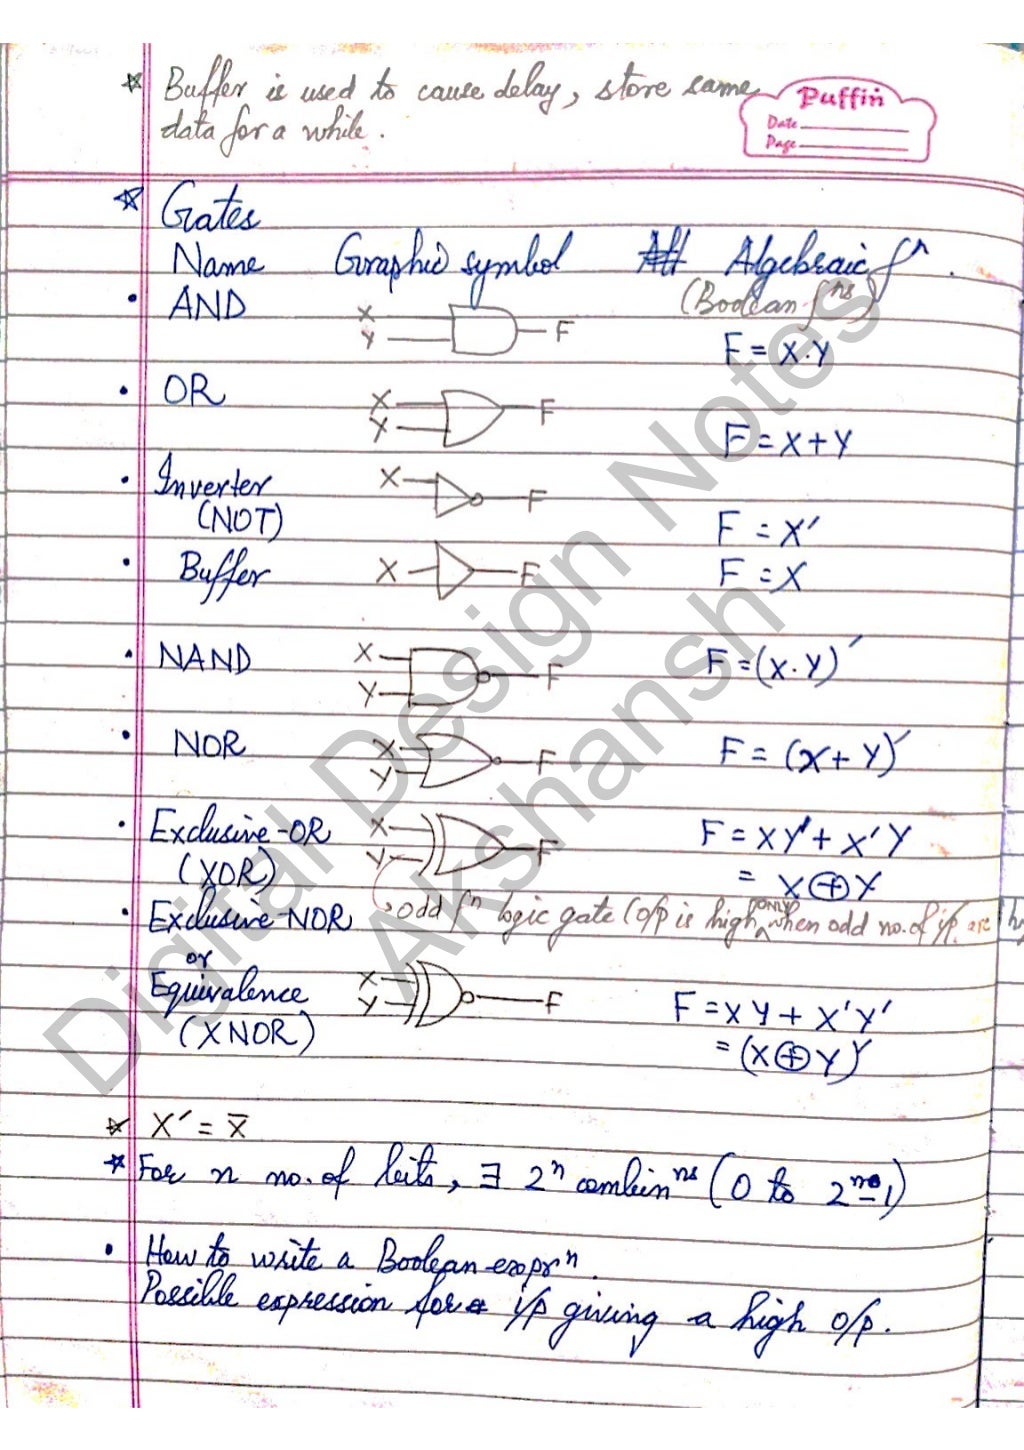 ☆ Buffer is used to cause delay, store same
data for a while.
Puffin
Date
Page
☆ Gates
Name Graphic symbol Algebraic fⁿ.
(Boolean fⁿˢ)
• AND X Y F F = X.Y
• OR X Y F F = X+Y
• Inverter X F
(NOT) F = X′
• Buffer X F F = X
• NAND X Y F F = (X.Y)′
• NOR X Y F F = (X+Y)′
• Exclusive-OR X Y F F = XY′ + X′Y
(XOR) = X⊕Y
→ odd fⁿ logic gate (o/p is high ONLY when odd no. of i/p are
• Exclusive-NOR
or
Equivalence X Y F F = XY + X′Y′
(XNOR) = (X⊕Y)′
☆ X′ = X̅
☆ For n no. of bits, ∃ 2ⁿ combinⁿˢ (0 to 2ⁿ-1)
• How to write a Boolean exprⁿ.
Possible expression for i/p giving a high o/p.
Digital Design Notes
Akshansh